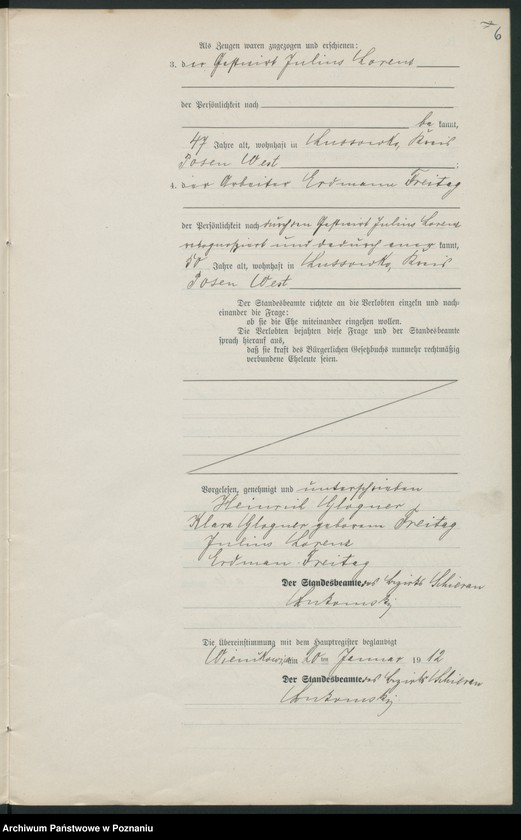 6
Als Zeugen waren zugezogen und erschienen:
3. der Gastwirt Julius Lorenz
der Persönlichkeit nach
be kannt,
47 Jahre alt, wohnhaft in Lussowko, Kreis
Posen West ;
4. der Arbeiter Erdmann Freitag
der Persönlichkeit nach durch den Gastwirt Julius Lorenz
rekognosziert und dadurch aner kannt,
50 Jahre alt, wohnhaft in Lussowko, Kreis
Posen West
Der Standesbeamte richtete an die Verlobten einzeln und nach-
einander die Frage:
ob sie die Ehe miteinander eingehen wollen.
Die Verlobten bejahten diese Frage und der Standesbeamte
sprach hierauf aus,
daß sie kraft des Bürgerlichen Gesetzbuchs nunmehr rechtmäßig
verbundene Eheleute seien.
Vorgelesen, genehmigt und unterschrieben
Heinrich Glogner
Klara Glogner geborene Freitag
Julius Lorenz
Erdman Freitag
Der Standesbeamte des Bezirks
Die Übereinstimmung mit dem Hauptregister beglaubigt
am 20ten Januar 1912
Der Standesbeamte des Bezirks
Archiwum Państwowe w Poznaniu